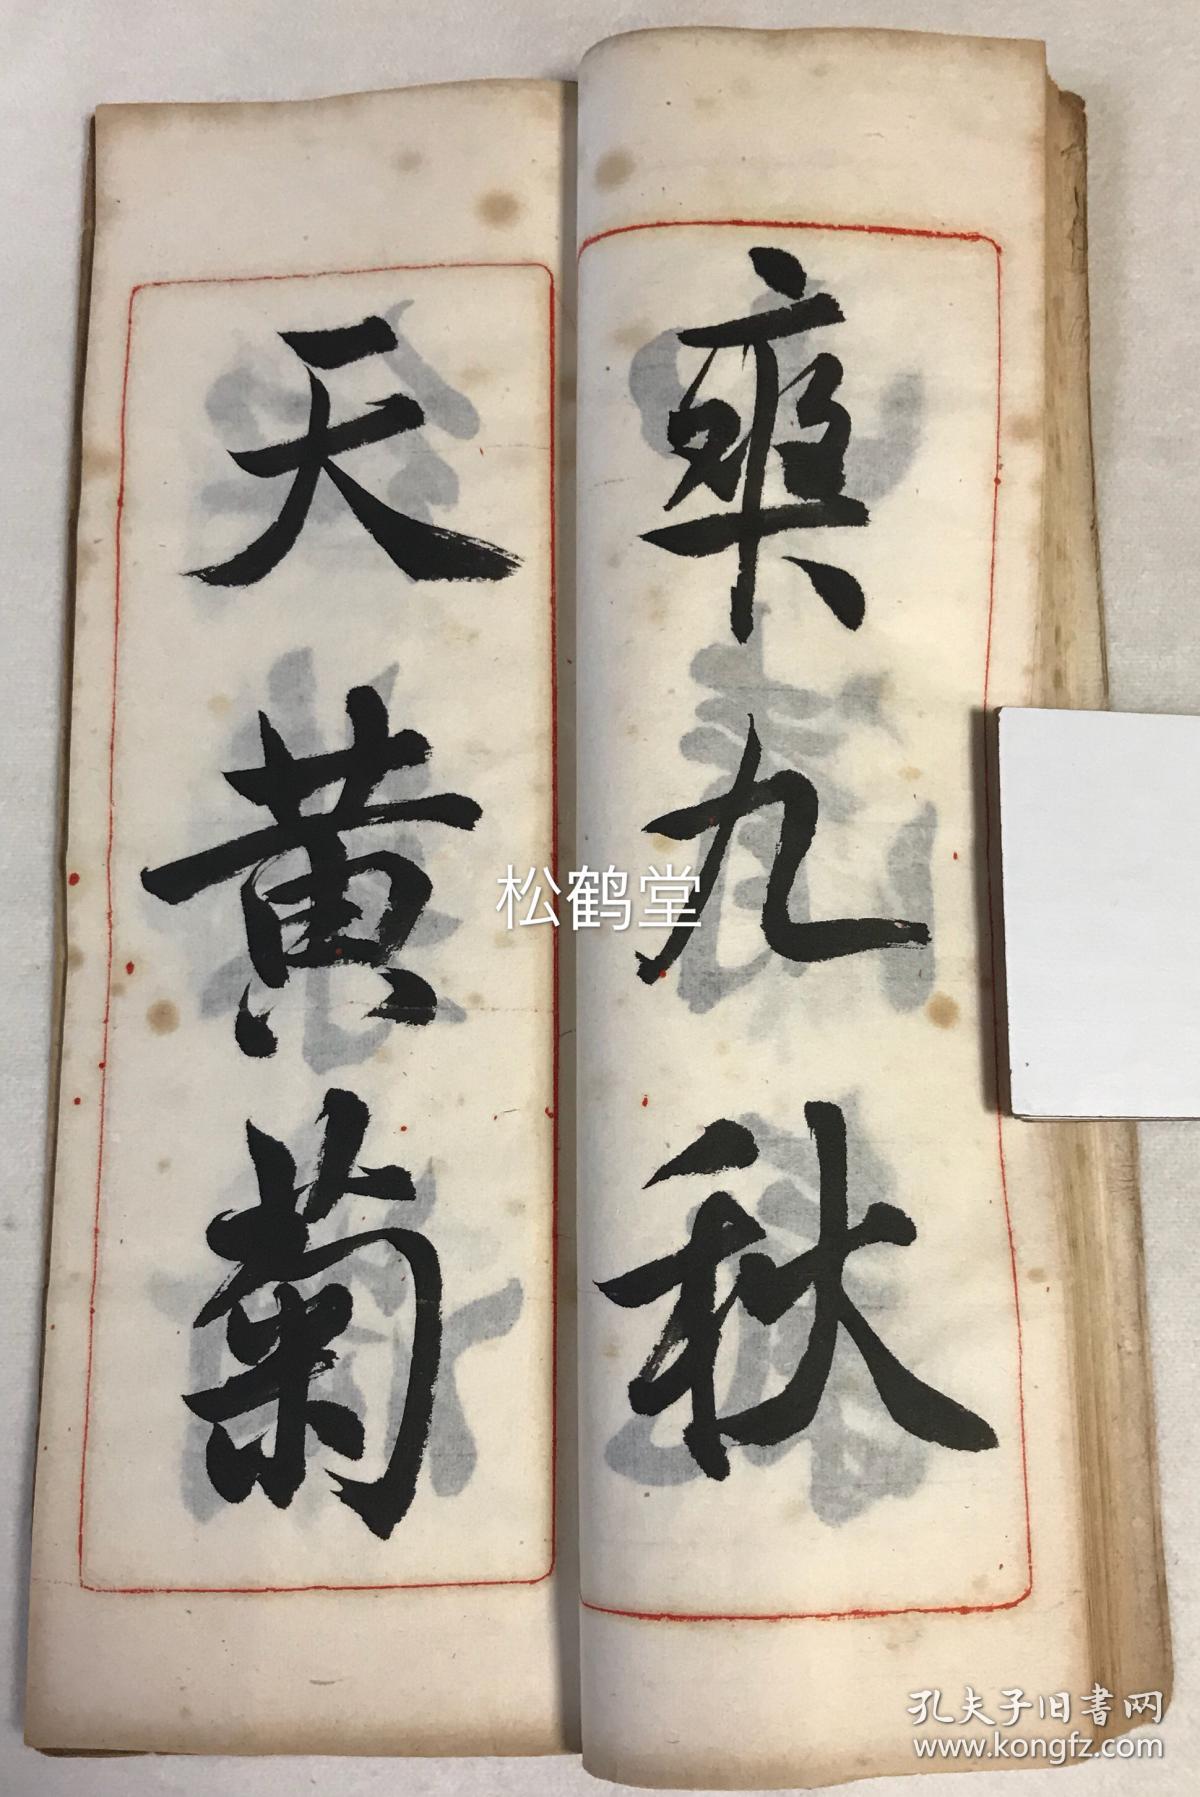 爽九秋
天黄菊
松鹤堂
孔夫子旧书网
www.kongfz.com